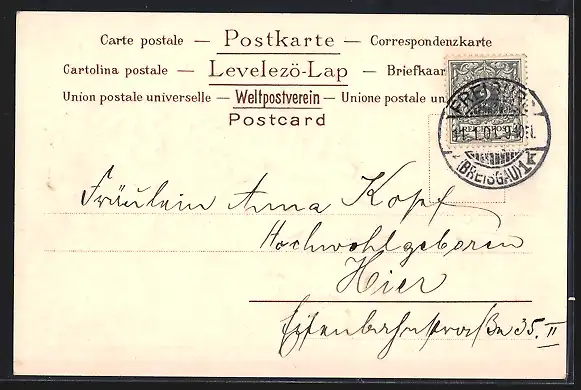 Carte postale — Postkarte — Correspondenzkarte
Cartolina postale — Levelezö-Lap — Briefkaar
Union postale universelle — Weltpostverein — Unione postale un
Postcard
FREIBURG
1.1.01.9-10
(BREISGAU) 1
Fräulein Anna Kopf
Hochwohlgeboren
Hier
Eisenbahnstraße 35. II